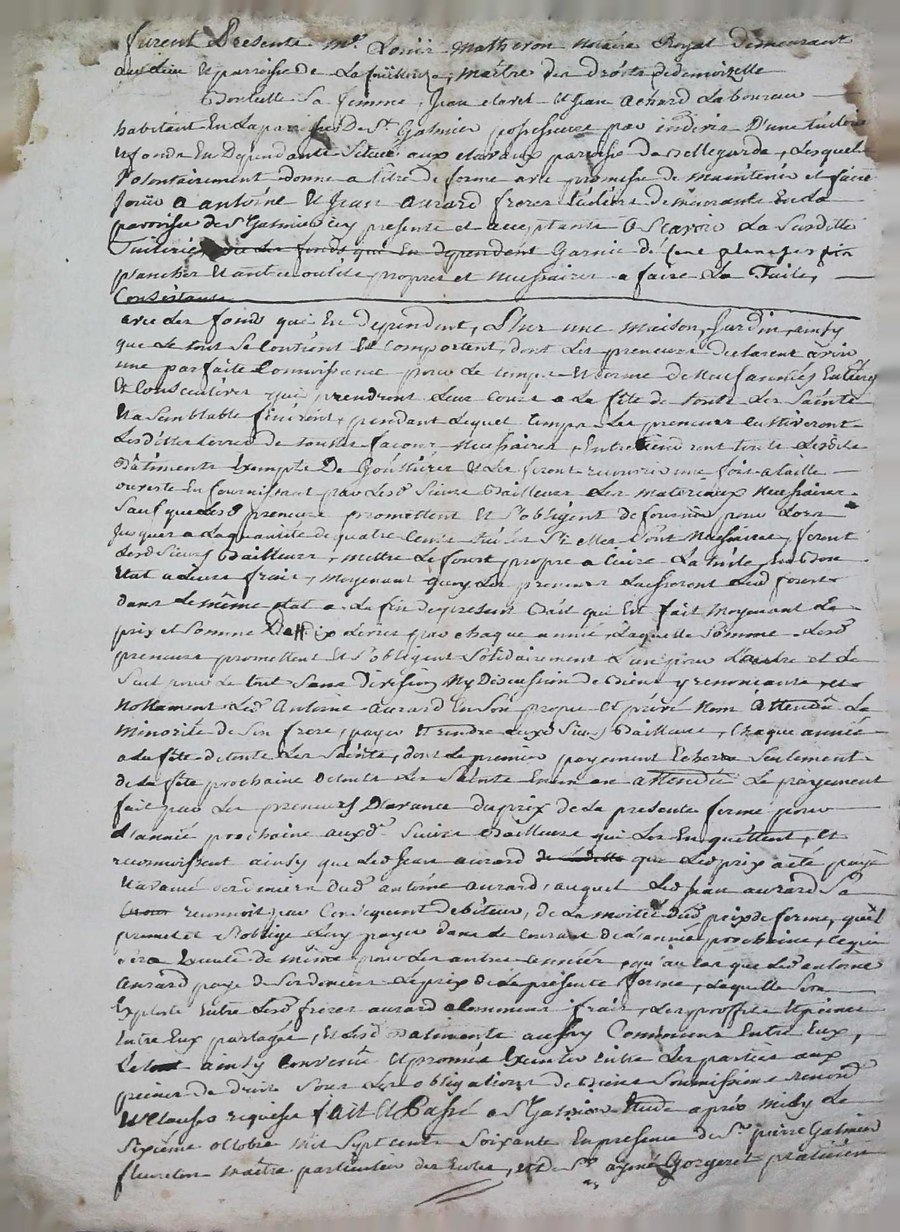 furent Presents me. Louis Matheron notaire Royal demeurant
au lieu et parroisse de La foüillouse, maître des droits de demoizelle
sa femme, Jean claret et Jean achard Laboureur
habitant En la parroisse De St. Galmier, possesseurs par indivis D'une tuilerie
et fonds En Dependants Situés aux paroisse de Bellegarde, Lesquels
Volontairement donne a titre de ferme avec promesse de maintenir et faire
Joüir a antoine Et Jean aurard freres tuiliers demeurants En la
parroisse de St Galmier icy presents et acceptants a Scavoir La Susditte
Tuilerie avec Les fonds qui En dependent Garnie de
plancher Et autres outils propres et necessaires a faire La Tuile,
Consistants
avec Les fonds qui En dependent, Plus une maison, Jardin, ainsy
que Le tout Se Contient Et Comportent, dont Les preneurs declarent avoir
une parfaite Connoissance pour Le temps Et terme De Neuf années Entieres
Et Consecutives qui prendront Leur Cours a La fête de touts Les Saints
Et a Semblable finiront, pendant Lequel temps Les preneurs cultiveront
Lesdittes terres de toutes facons necessaires, Entretiendront touts Lesdits
Bâtiments Exempts De Goûttieres et Les feront recouvrir une fois a taille
ouverte En fournissant par Lesd. Sieurs Bailleurs Les materiaux necessaires
Sauf que Lesd. preneurs promettent Et S'obligent de fournir pour Lors
Jusques a La quantité de quatre Cents tuiles Si elles Sont Necessaires, feront
Lesd. Sieurs Bailleurs mettre Le fourt propre a Cuire La tuile en bon
Etat a Leurs frais, moyenant que Les preneurs Laisseront Led fourt
dans Le même etat a La fin du present Bail qui Est fait Moyenant Le
prix et Somme De Dix Livres par chaque année, Laquelle Somme Lesd.
preneurs promettent Et S'obligent Solidairement L'un pour L'autre et Le
Seul pour Le tout Sans division Ny Discussion de Biens y renonceants et
Nottament Led. Antoine aurard En Son propre Et privé Nom Attendû La
minorité de Son frere, payer Et rendre auxd Sieurs Bailleurs, Chaque année
a La fête de touts Les Saints, dont Le premier payement Echerra Seulement
de La fête prochaine de touts Les Saints En un an attendû Le payement
fait par Les preneurs D'avance du prix de La presente ferme pour
L'année prochaine auxd. Sieurs Bailleurs qui Les En quittent, et
reconnoissent ainsy que Led Jean aurard que Led prix a été payé
Et avancé des deniers dud. antoine aurard, auquel Led Jean aurard Sa
reconnoit par Consequent debiteur, de La moitié dud. prix de ferme, qu'il
promet et S'oblige Luy payer dans Le Courant de L'année prochaine, Ce qui
Sera Executé de même pour Les autres années, qu'au Cas que Led. antoine
Aurard paye de Ses deniers Le prix de La presente ferme, Laquelle Sera
Exploité Entre Lesd. freres aurard a Communs frais, Les proffits Et pertes
Entre Eux partagés, Et Lesd. Batiments aussy Communs Entre Eux,
Le tout ainsy Convenû Et promis Executer Entre Les parties aux
peines de droit Sous Les obligations de Biens Soumissions renond.
Et Clauses requises fait Et Passé a St Galmier Etude après midy Le
Sixiême octobre mil Sept Cents Soixante En presence de Sr. pierre Galmier
fleureton maître particulier des Eaux, et de Sr. aymé Gorgeret praticien